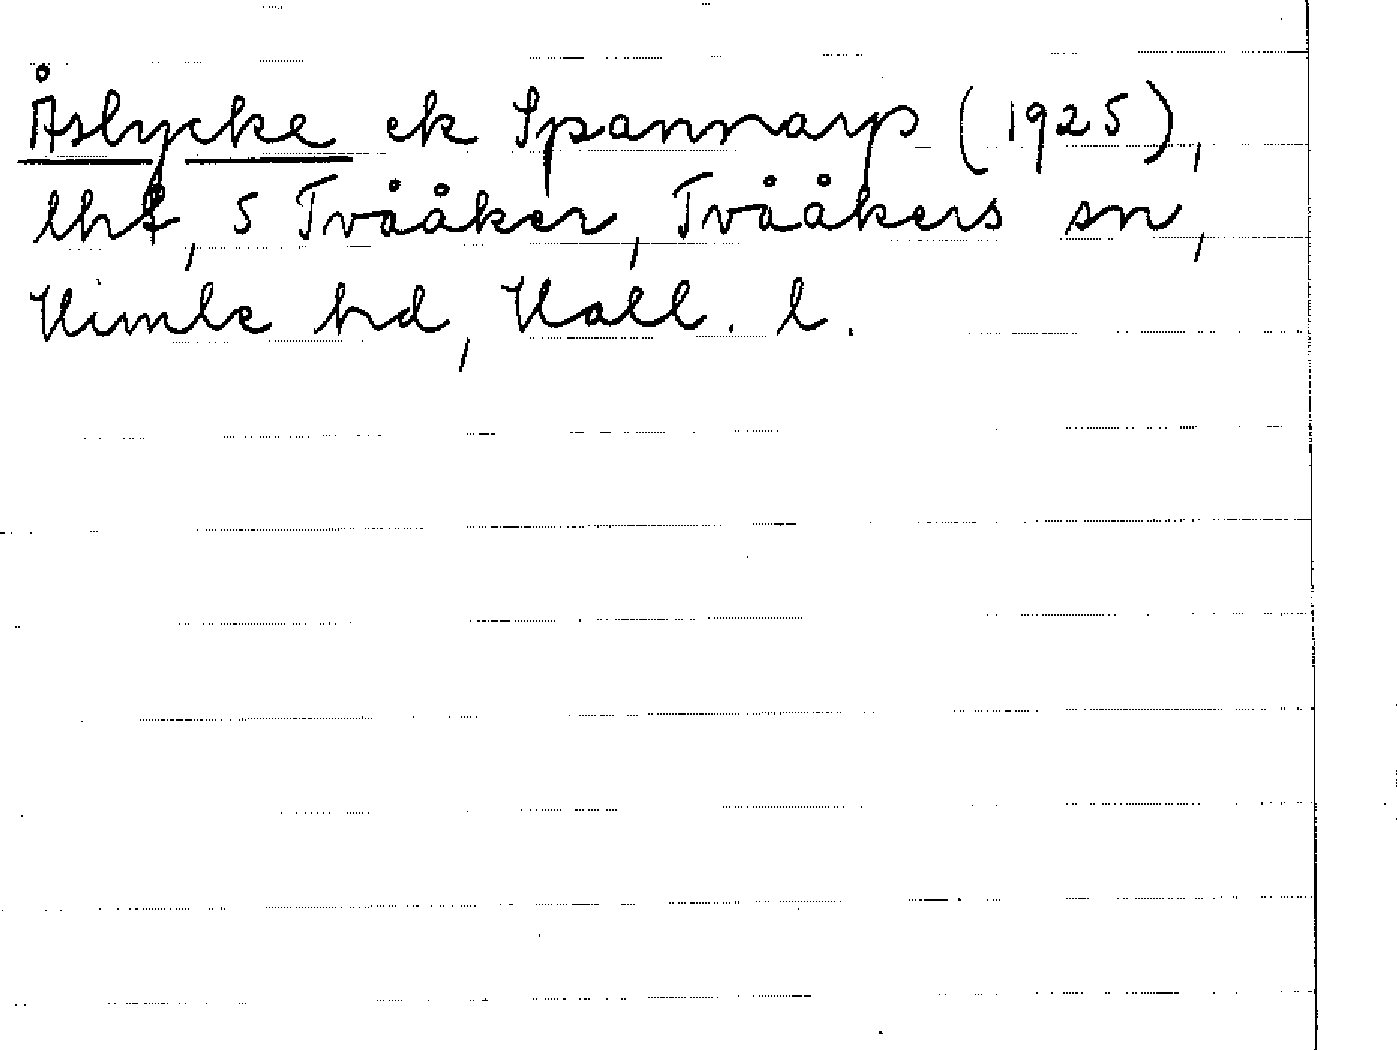 Åslycke ek Spannarp (1925),
lht, S Tvååker, Tvååkers sn,
Himle hd, Hall. l.